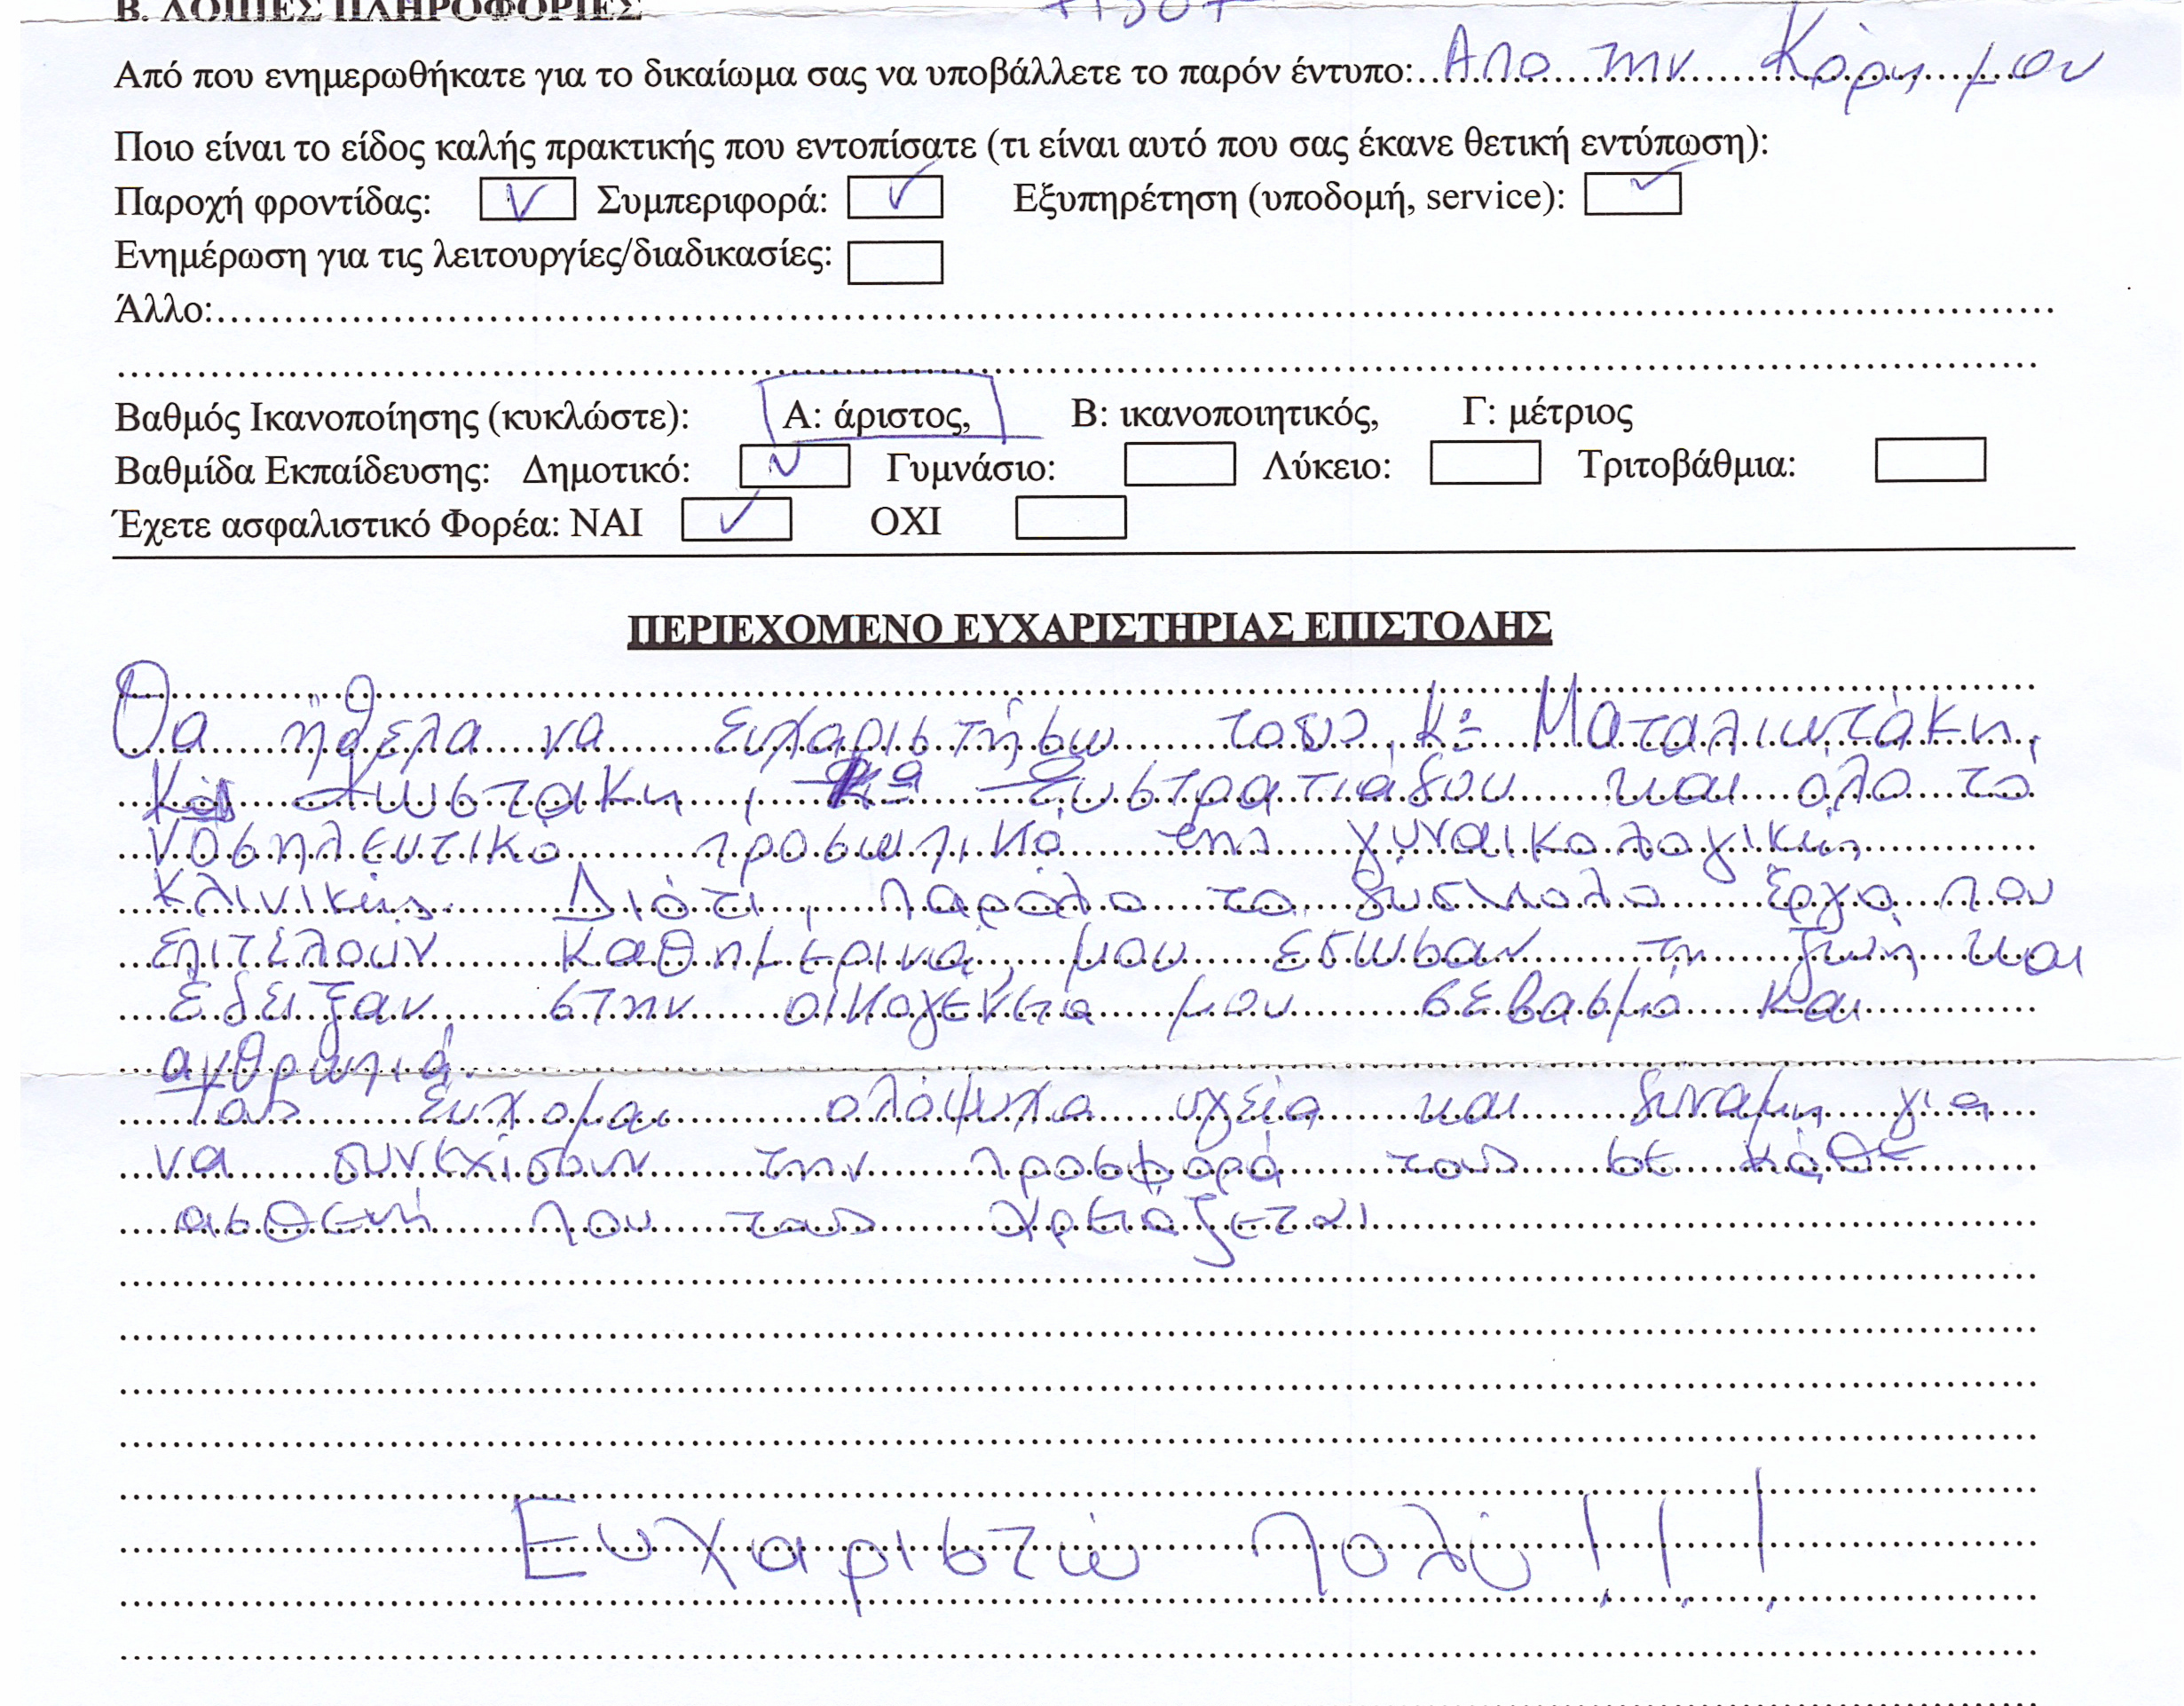 Β. ΛΟΙΠΕΣ ΠΛΗΡΟΦΟΡΙΕΣ
Από που ενημερωθήκατε για το δικαίωμα σας να υποβάλλετε το παρόν έντυπο: Απο την Κόρη μου
Ποιο είναι το είδος καλής πρακτικής που εντοπίσατε (τι είναι αυτό που σας έκανε θετική εντύπωση):
Παροχή φροντίδας: ✓ Συμπεριφορά: ✓ Εξυπηρέτηση (υποδομή, service): ✓
Ενημέρωση για τις λειτουργίες/διαδικασίες:
Άλλο:
Βαθμός Ικανοποίησης (κυκλώστε): Α: άριστος, Β: ικανοποιητικός, Γ: μέτριος
Βαθμίδα Εκπαίδευσης: Δημοτικό: ✓ Γυμνάσιο: Λύκειο: Τριτοβάθμια:
Έχετε ασφαλιστικό Φορέα: ΝΑΙ ✓ ΟΧΙ
ΠΕΡΙΕΧΟΜΕΝΟ ΕΥΧΑΡΙΣΤΗΡΙΑΣ ΕΠΙΣΤΟΛΗΣ
Θα ήθελα να ευχαριστήσω τους, Κο Ματαλιωτάκη,
Κο Λιωστάκη, Κα Ευστρατιάδου και όλο το
νοσηλευτικό προσωπικό της γυναικολογικής
κλινικής. Διότι, παρόλο το δύσκολο έργο που
επιτελούν καθημερινά, μου έσωσαν τη ζωή και
έδειξαν στην οικογένεια μου σεβασμό και
ανθρωπιά.
Τους εύχομαι ολόψυχα υγεία και δύναμη για
να συνεχίσουν την προσφορά τους σε κάθε
ασθενή που τους χρειάζεται
Ευχαριστώ πολύ!!!